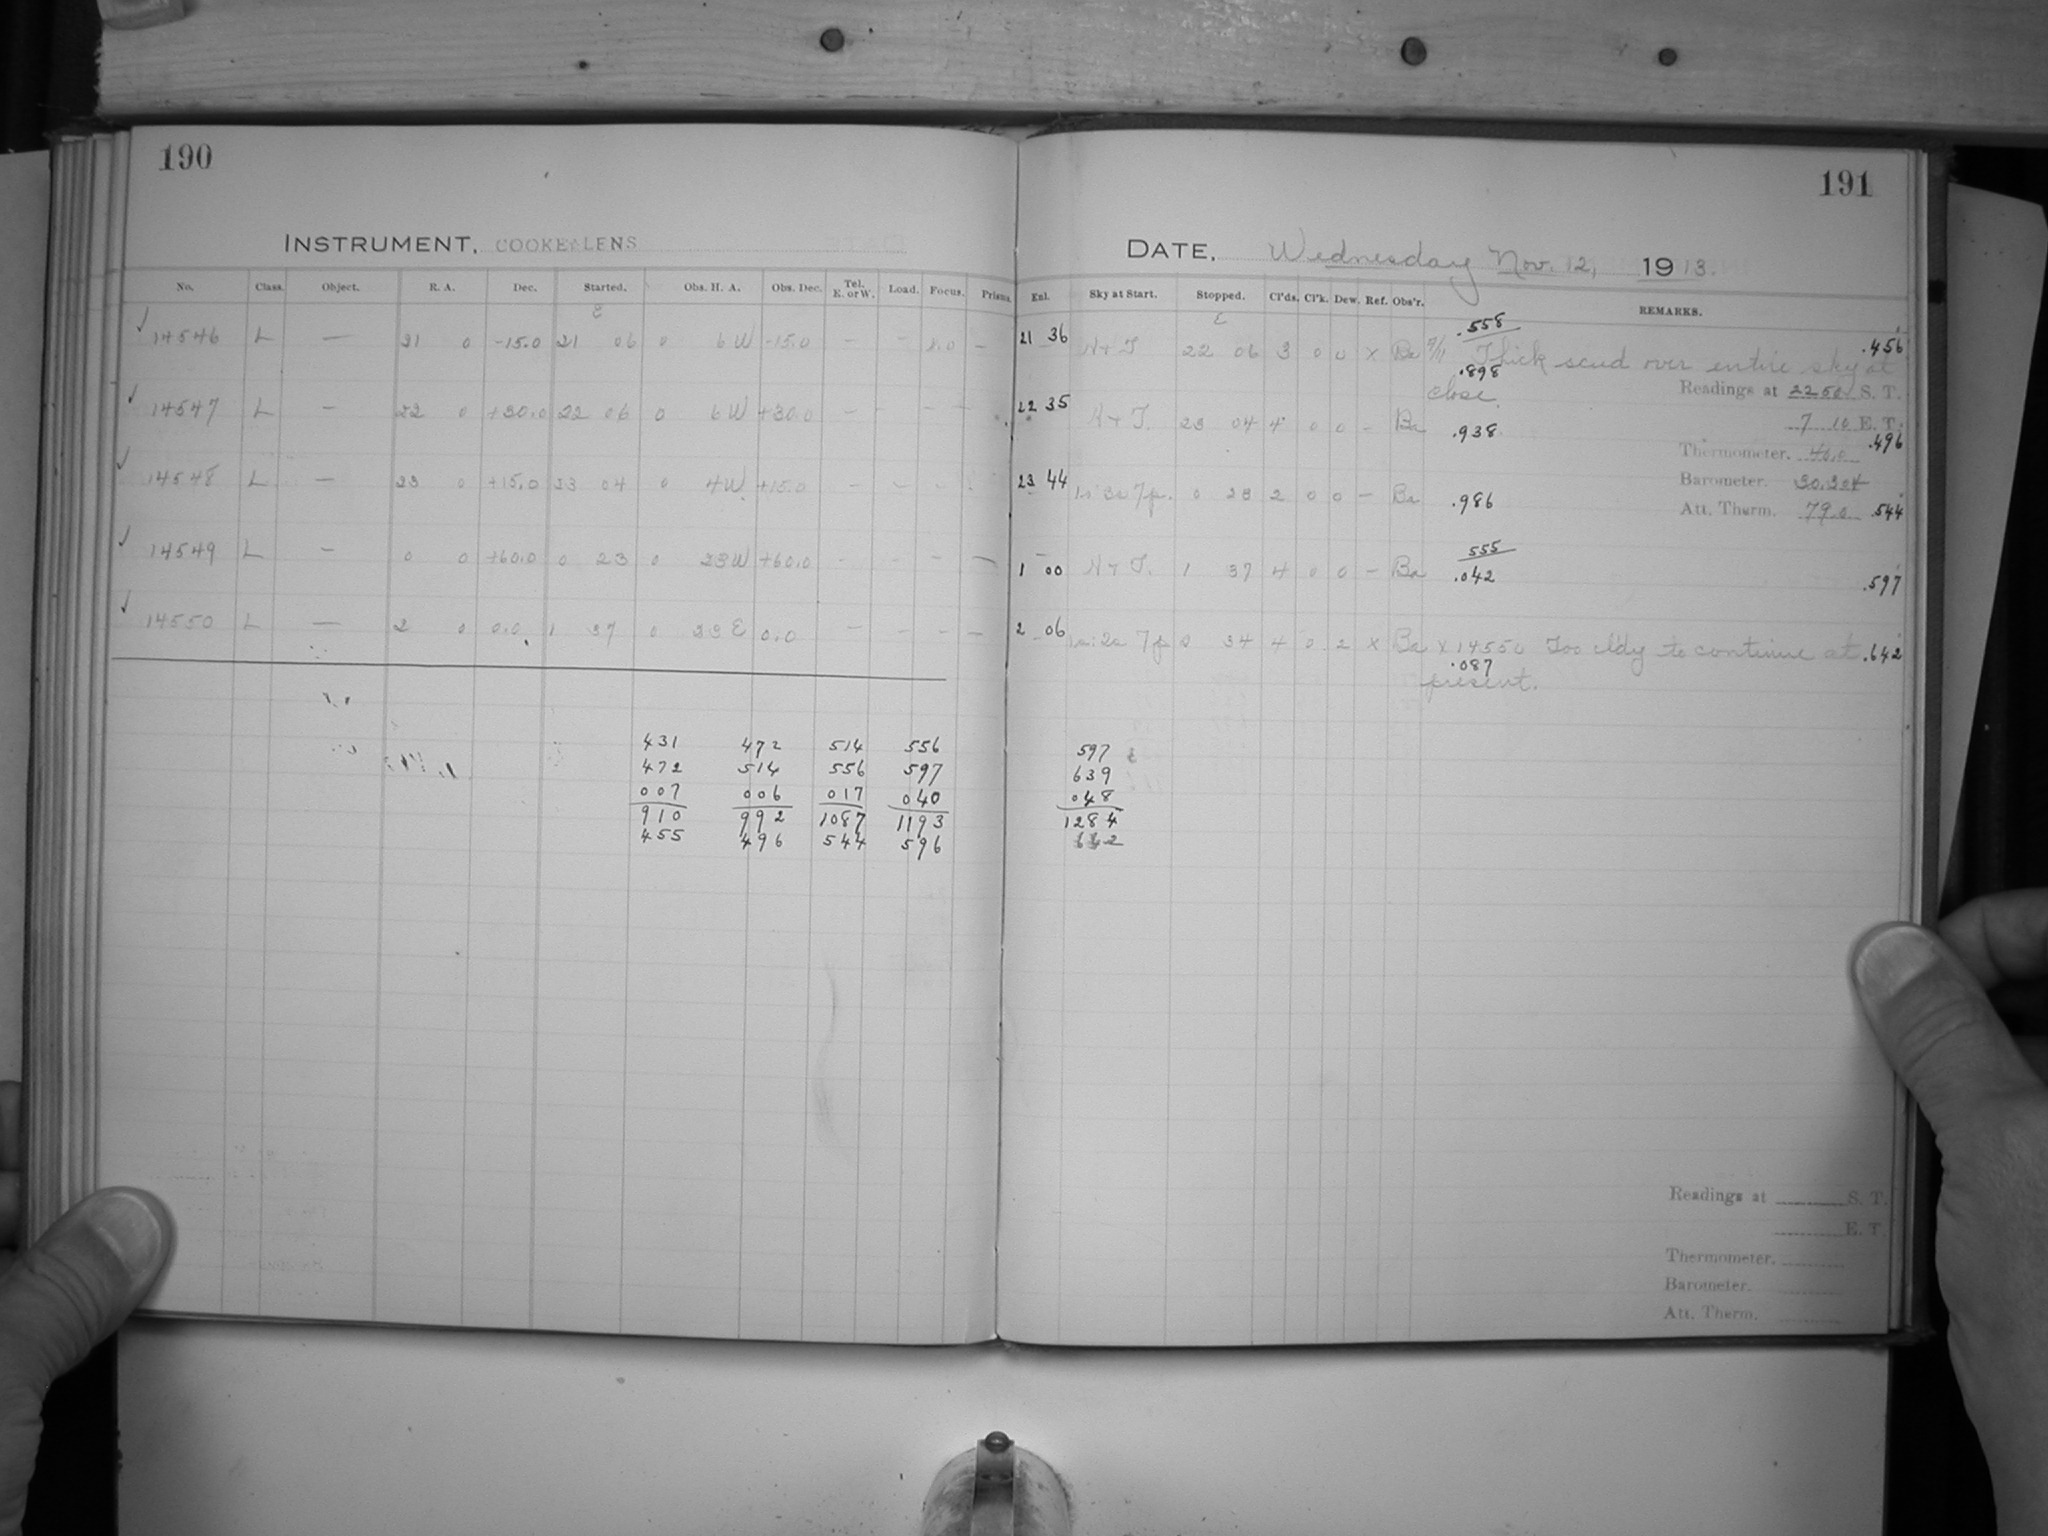 190
191
INSTRUMENT, COOKE LENS
DATE, Wednesday Nov. 12, 1913.
No. Class. Object. R. A. Dec. Started. Obs. H. A. Obs. Dec. Tel. E. or W. Load. Focus. Prisms. Enl. Sky at Start. Stopped. Cl'ds. Cl'k. Dew. Ref. Obs'r. REMARKS.
E E .558
✓ 14546 L — 21 0 -15.0 21 06 0 6 W -15.0 — — 8.0 — 21 36 22 06 3 0 0 x Ba Thick scud over entire sky at .456
.898
close.
Readings at 22 50 S. T.
✓ 14547 L — 22 0 +30.0 22 06 0 6 W +30.0 — — — — 22 35 23 04 4 0 0 — Ba .938
7 10 E. T.
.496
Thermometer. 46.0
✓ 14548 L — 23 0 +15.0 23 04 0 4 W +15.0 — — — 23 44 0 23 2 0 0 — Ba .986
Barometer. 30.304
Att. Therm. 79.0 .544
555
✓ 14549 L — 0 0 +60.0 0 23 0 23 W +60.0 — — — — 1 00 1 37 4 0 0 — Ba .042 .597
✓ 14550 L — 2 0 0.0 1 37 0 23 E 0.0 — — — — 2 06 2 34 4 0 2 x Ba x 14550 Too cl'dy to continue at .642
.087
present.
431 472 514 556 597
472 514 556 597 639
007 006 017 040 048
910 992 1087 1193 1284
455 496 544 596 642
Readings at S. T.
E. T.
Thermometer.
Barometer.
Att. Therm.